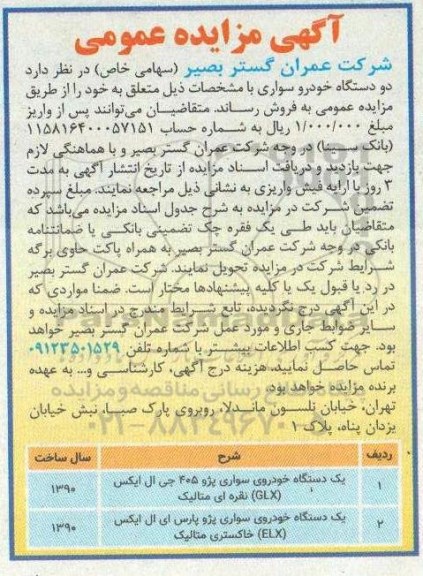 آگهی مزایده عمومی
شرکت عمران گستر بصیر (سهامی خاص) در نظر دارد
دو دستگاه خودرو سواری با مشخصات ذیل متعلق به خود را از طریق
مزایده عمومی به فروش رساند. متقاضیان می‌توانند پس از واریز
مبلغ ۱/۰۰۰/۰۰۰ ریال به شماره حساب ۱۱۵۸۱۶۴۰۰۰۵۷۱۵۱
(بانک سینا) در وجه شرکت عمران گستر بصیر و با هماهنگی لازم
جهت بازدید و دریافت اسناد مزایده از تاریخ انتشار آگهی به مدت
۳ روز با ارایه فیش واریزی به نشانی ذیل مراجعه نمایند. مبلغ سپرده
تضمین شرکت در مزایده به شرح جدول اسناد مزایده می‌باشد که
متقاضیان باید طی یک فقره چک تضمینی بانکی یا ضمانتنامه
بانکی در وجه شرکت عمران گستر بصیر به همراه پاکت حاوی برگه
شرایط شرکت در مزایده تحویل نمایند. شرکت عمران گستر بصیر
در رد یا قبول یک یا کلیه پیشنهادها مختار است. ضمنا مواردی که
در این آگهی درج نگردیده، تابع شرایط مندرج در اسناد مزایده و
سایر ضوابط جاری و مورد عمل شرکت عمران گستر بصیر خواهد
بود. جهت کسب اطلاعات بیشتر با شماره تلفن ۰۹۱۲۳۵۰۱۵۲۹
تماس حاصل نمایید. هزینه درج آگهی، کارشناسی و... به عهده
برنده مزایده خواهد بود.
تهران: خیابان نلسون ماندلا، روبروی پارک صبا، نبش خیابان
یزدان پناه، پلاک ۱
ردیف شرح سال ساخت
۱ یک دستگاه خودروی سواری پژو ۴۰۵ جی ال ایکس
(GLX) نقره ای متالیک ۱۳۹۰
۲ یک دستگاه خودروی سواری پژو پارس ای ال ایکس
(ELX) خاکستری متالیک ۱۳۹۰
۰۲۱-۸۸۳۴۹۶۷۰